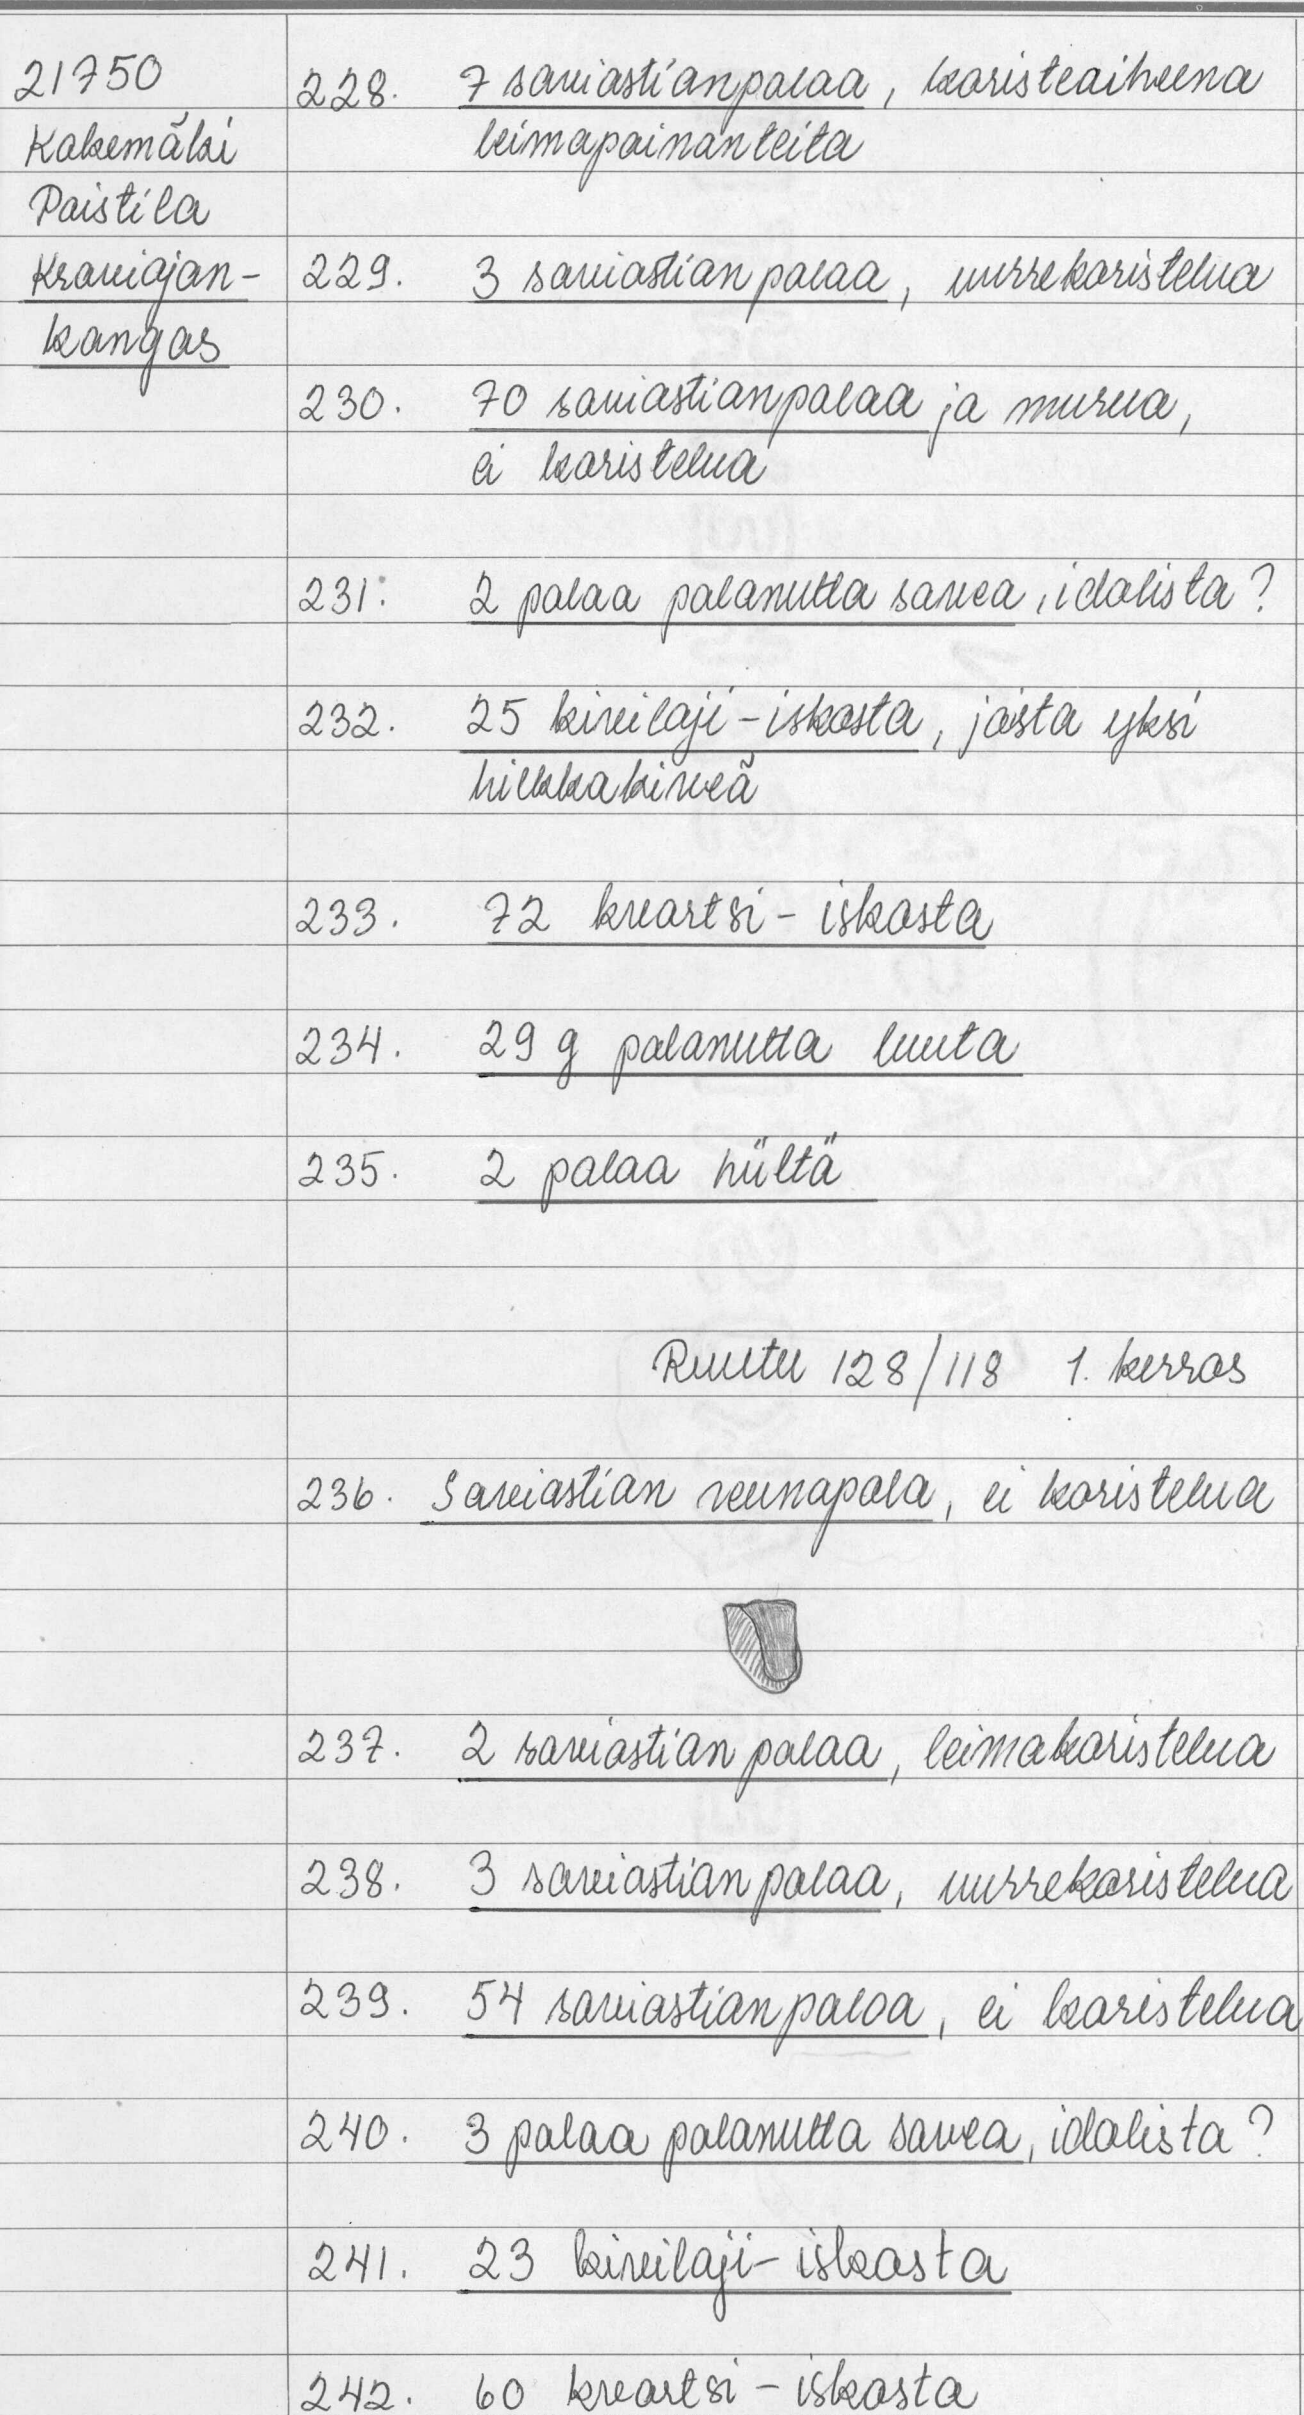 21750
Kokemäki
Paistila
Kraviojan-
kangas
228. 7 saviastianpalaa, koristeaiheena
leimapainanteita
229. 3 saviastianpalaa, uurrekoristelua
230. 70 saviastianpalaa ja murua,
ei koristelua
231. 2 palaa palanutta savea, idolista?
232. 25 kivilaji-iskosta, josta yksi
hiekkakiveä
233. 72 kvartsi-iskosta
234. 29 g palanutta luuta
235. 2 palaa hiiltä
Ruutu 128/118 1. kerros
236. Saviastian reunapala, ei koristelua
237. 2 saviastianpalaa, leimakoristelua
238. 3 saviastianpalaa, uurrekoristelua
239. 54 saviastianpalaa, ei koristelua
240. 3 palaa palanutta savea, idolista?
241. 23 kivilaji-iskosta
242. 60 kvartsi-iskosta